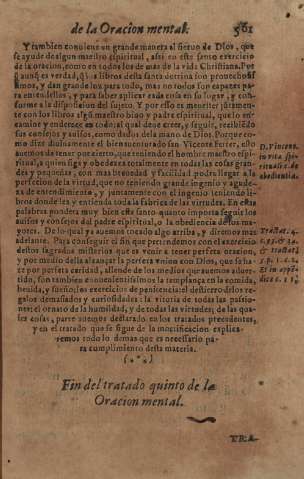 de la Oracion mental. 561
Y tambien conuiene en grande manera al sieruo de Dios, que
se ayude de algun maestro espiritual, assi en este santo exercicio
de la oracion, como en todos los de mas de la vida Christiana. Por
q̃ aunq̃ es verdad, q̃ los libros desta santa dotrina son prouechosis
simos, y dan grande luz para todo, mas no todos son capaces pa
ra entendellos, y para saber aplicar cada cosa en su lugar, y con-
forme a la disposicion del sujeto. Y por esso es menester juntamẽ
te con los libros algũ maestro biuo y padre espiritual, que lo en-
camine y enderece en todo: al qual deue creer, y seguir, recibiẽdo
sus consejos y auisos, como dados de la mano de Dios. Porque co-
mo dize diuinamente el bienauenturado san Vicente Ferrer, esto
auemos de tener por cierto, que teniendo el hombre maestro espi-
ritual, a quien siga y obedezca totalmente en todas las cosas gran
des y pequeñas, con mas breuedad y facilidad podra llegar a la
perfecion de la virtud, que no teniendo grande ingenio y agude-
za de entendimiento, y juntamente con el ingenio teniendo li-
bros donde lea y entienda toda la fabrica de las virtudes. En estas
palabras pondera muy bien este santo quanto importa seguir los
auisos y consejos del padre espiritual, o la obediencia de sus ma-
yores. De lo qual ya auemos tocado algo arriba, y diremos mas
adelante. Para conseguir el fin que pretendemos con el exercicio
destos sagrados misterios que es venir a tener perfeta oracion,
y por medio della alcançar la perfeta vnion con Dios, que se ha
ze por perfeta caridad, allende de los medios que auemos aduer-
tido, son tambien conuenientissimos la templança en la comida,
beuida, y sueño: los exercicios de penitencia: el destierro de los re-
galos demasiados y curiosidades: la vitoria de todas las passio-
nes: el ornato de la humildad, y de todas las virtudes; de las qua-
les cosas, parte auemos declarado en los tratados precedentes,
y en el tratado que se sigue de la mortificacion explica-
remos todo lo demas que es necessario pa-
ra cumplimiento desta materia.
D. Vincent.
in vita spi-
rituali c. de
obedientia.
Fin del tratado quinto de la
Oracion mental.
TRA-